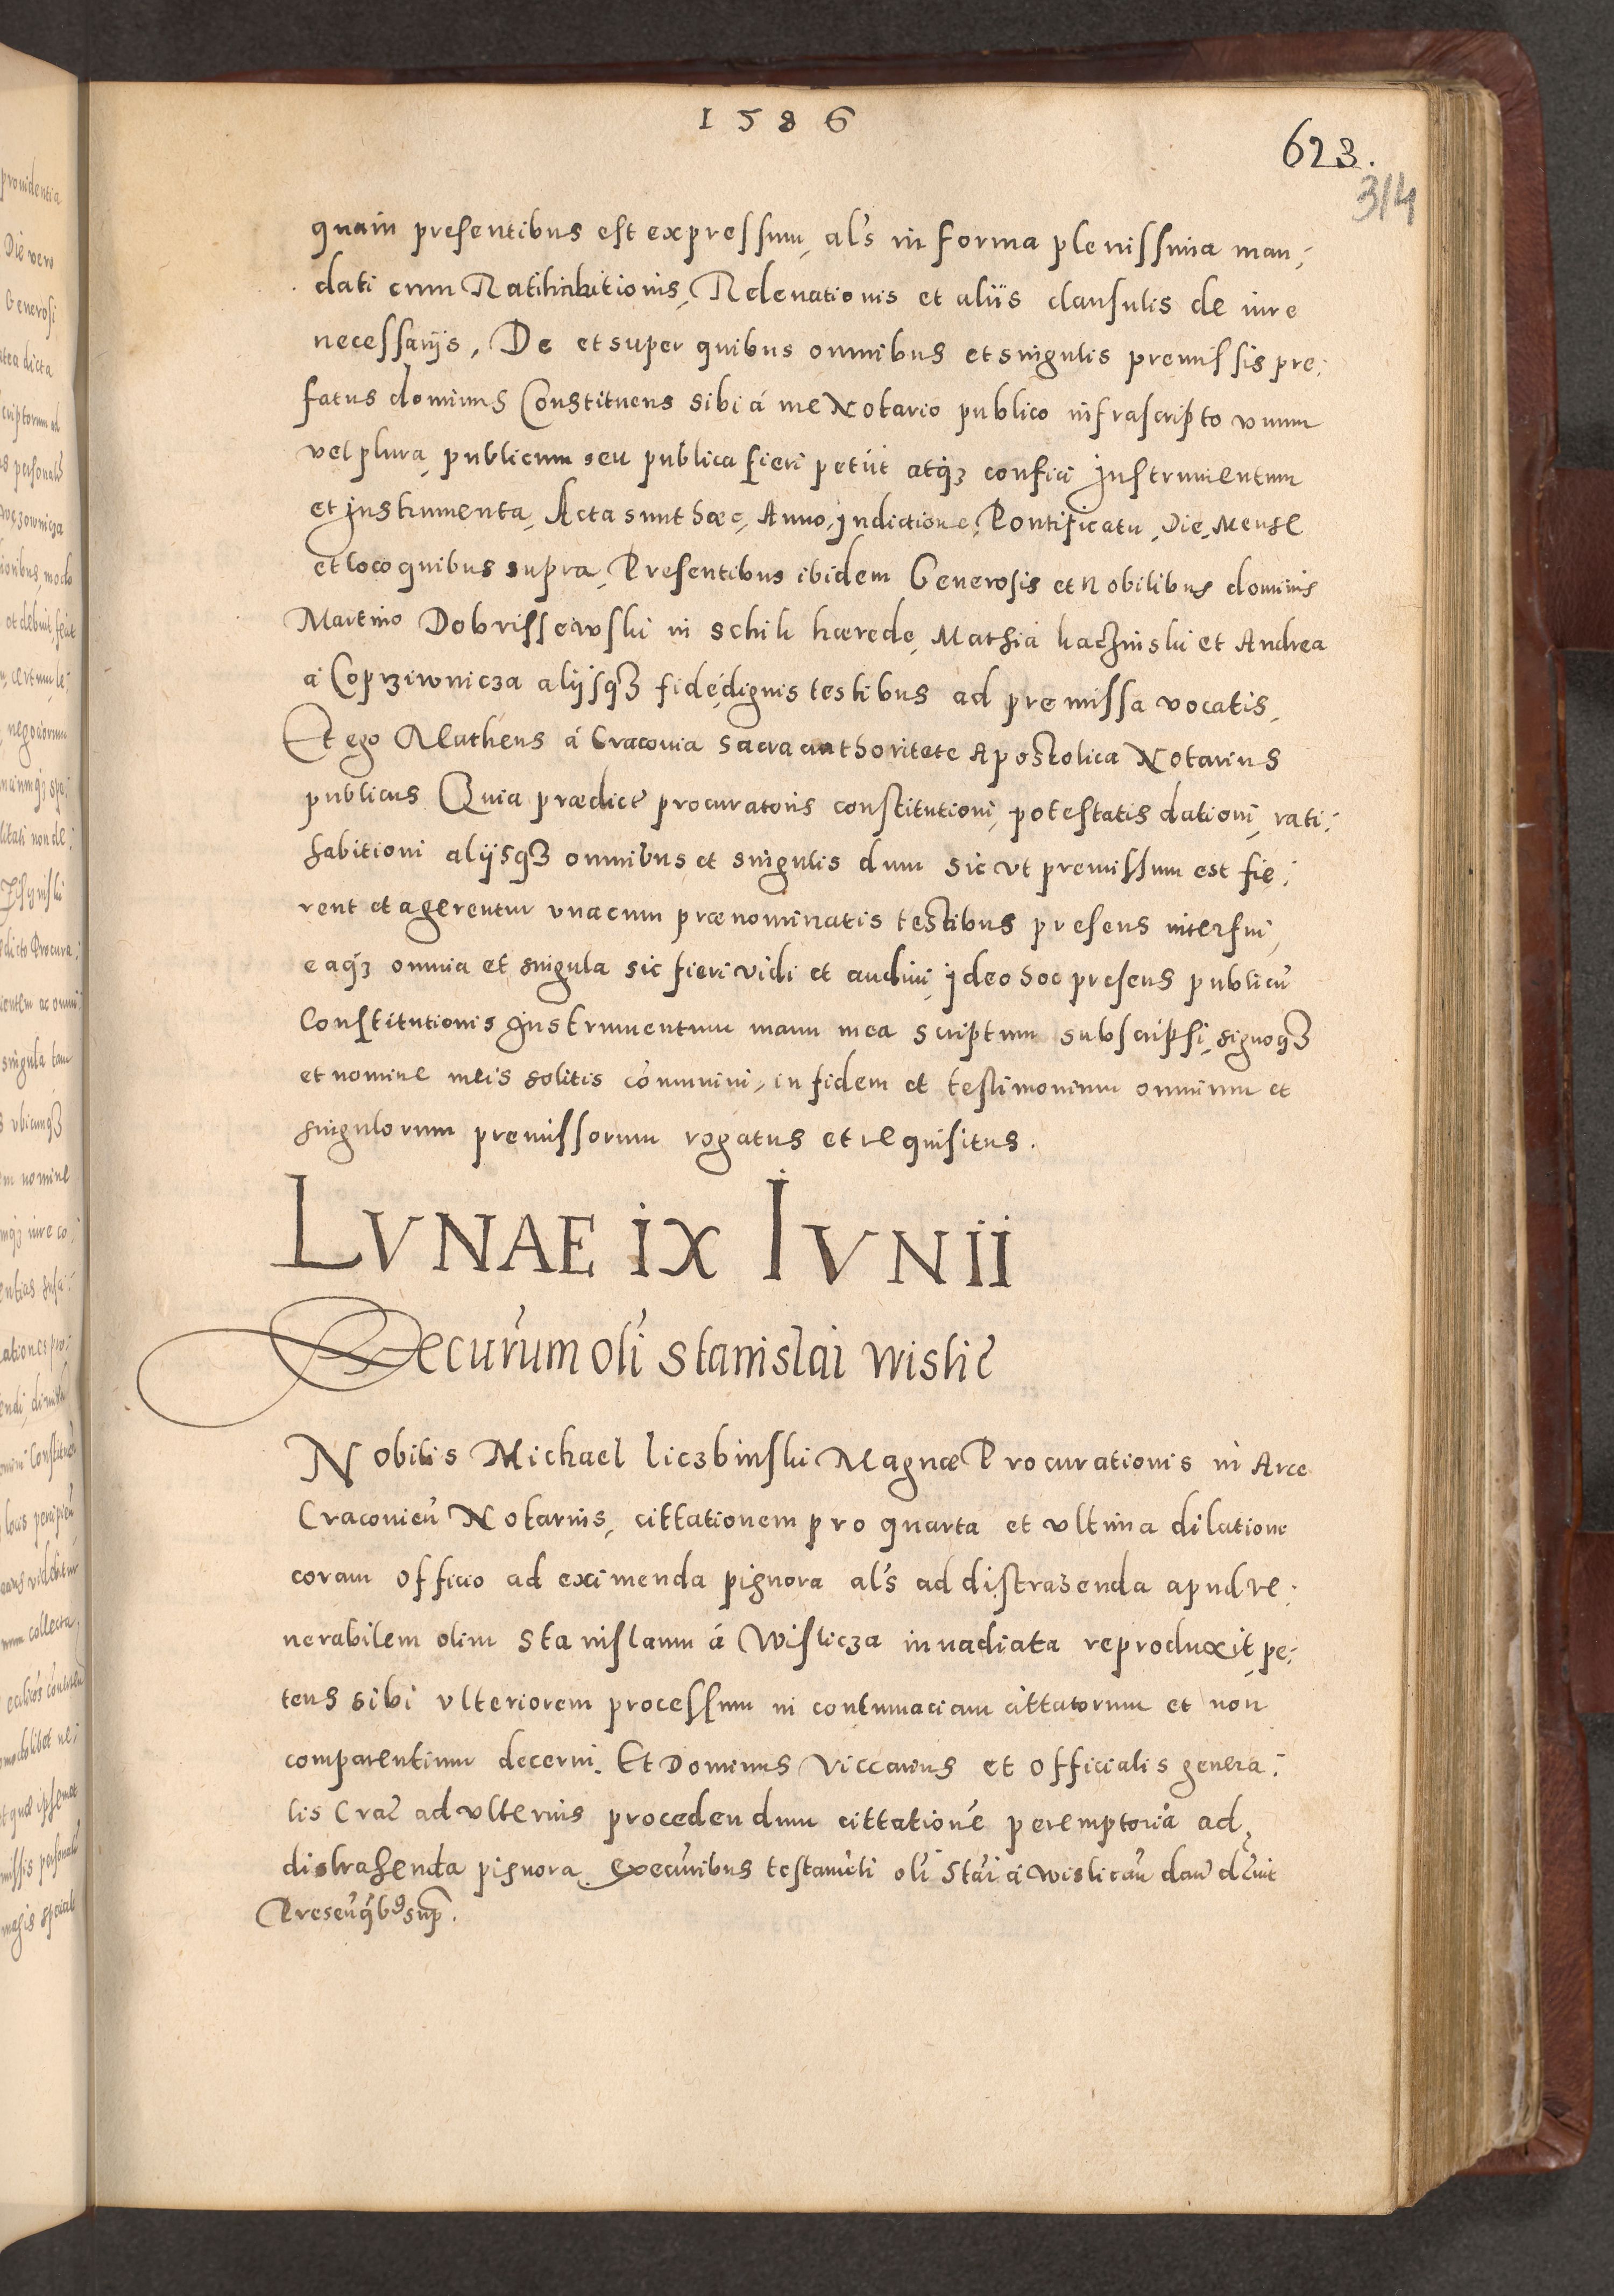 1586
623.
314
quam presentibus est expressum, als in forma plenissima man;
dati cum Ratihabitionis, Releuationis et aliis clausulis de iure
necessarijs, De et super quibus omnibus et singulis premissis pre;
fatus dominus Constituens sibi á me Notario publico infrascripto vnum
vel plura, publicum seu publica fieri petiit atqz confici Instrumentum
et Instrumenta, Acta sunt hæc, Anno, Indictione, Pontificatu, Die, Mense
et loco quibus supra, Presentibus ibidem Generosis et Nobilibus dominis
Martino Dobrissewski in Schik hærede, Mathia et Andrea
á Coprziwnicza alijsqz fidedignis testibus ad premissa vocatis,
Et ego Matheus á Cracouia sacra authoritete Apostolica Notarius
publicus Quia prædicte procuratoris constitutioni, potestatis dationi, rati;
habitioni alijsqz omnibus et singulis dum sic vt premissum est fie;
rent et agerentur vnacum prænominatis testibus presens interfui,
eaqz omnia et singula sic fieri vidi et audiui, Ideo hoc presens publicũ
Constitutionis Instrumentum manu mea scriptum subscripsi, signoqz
et nomine meis solitis cómuniui, in fidem et testimonium omnium et
singulorum premissorum rogatus et requisitus.
LVNAE IX IVNII
stanislai wislic̃
Nobilis Michael liczbinski Magnæ Procurationis in Arce
Cracovieñ Notarius, cittationem pro quarta et vltima dilatione
coram officio ad eximenda pignora als ad distrahenda apud ve;
nerabilem olim Stanislaum á Wislicza inuadiata reproduxit, pe;
tens sibi vlteriorem processum in contumaciam cittatorum et non
comparentium decerni. Et Dominus Viccarius et Officialis genera;
lis Crac̃ ad vlterius procedendum cittationé peremptoriá ad
distrahenda pignora, testam̃ti olĩ Stãi á